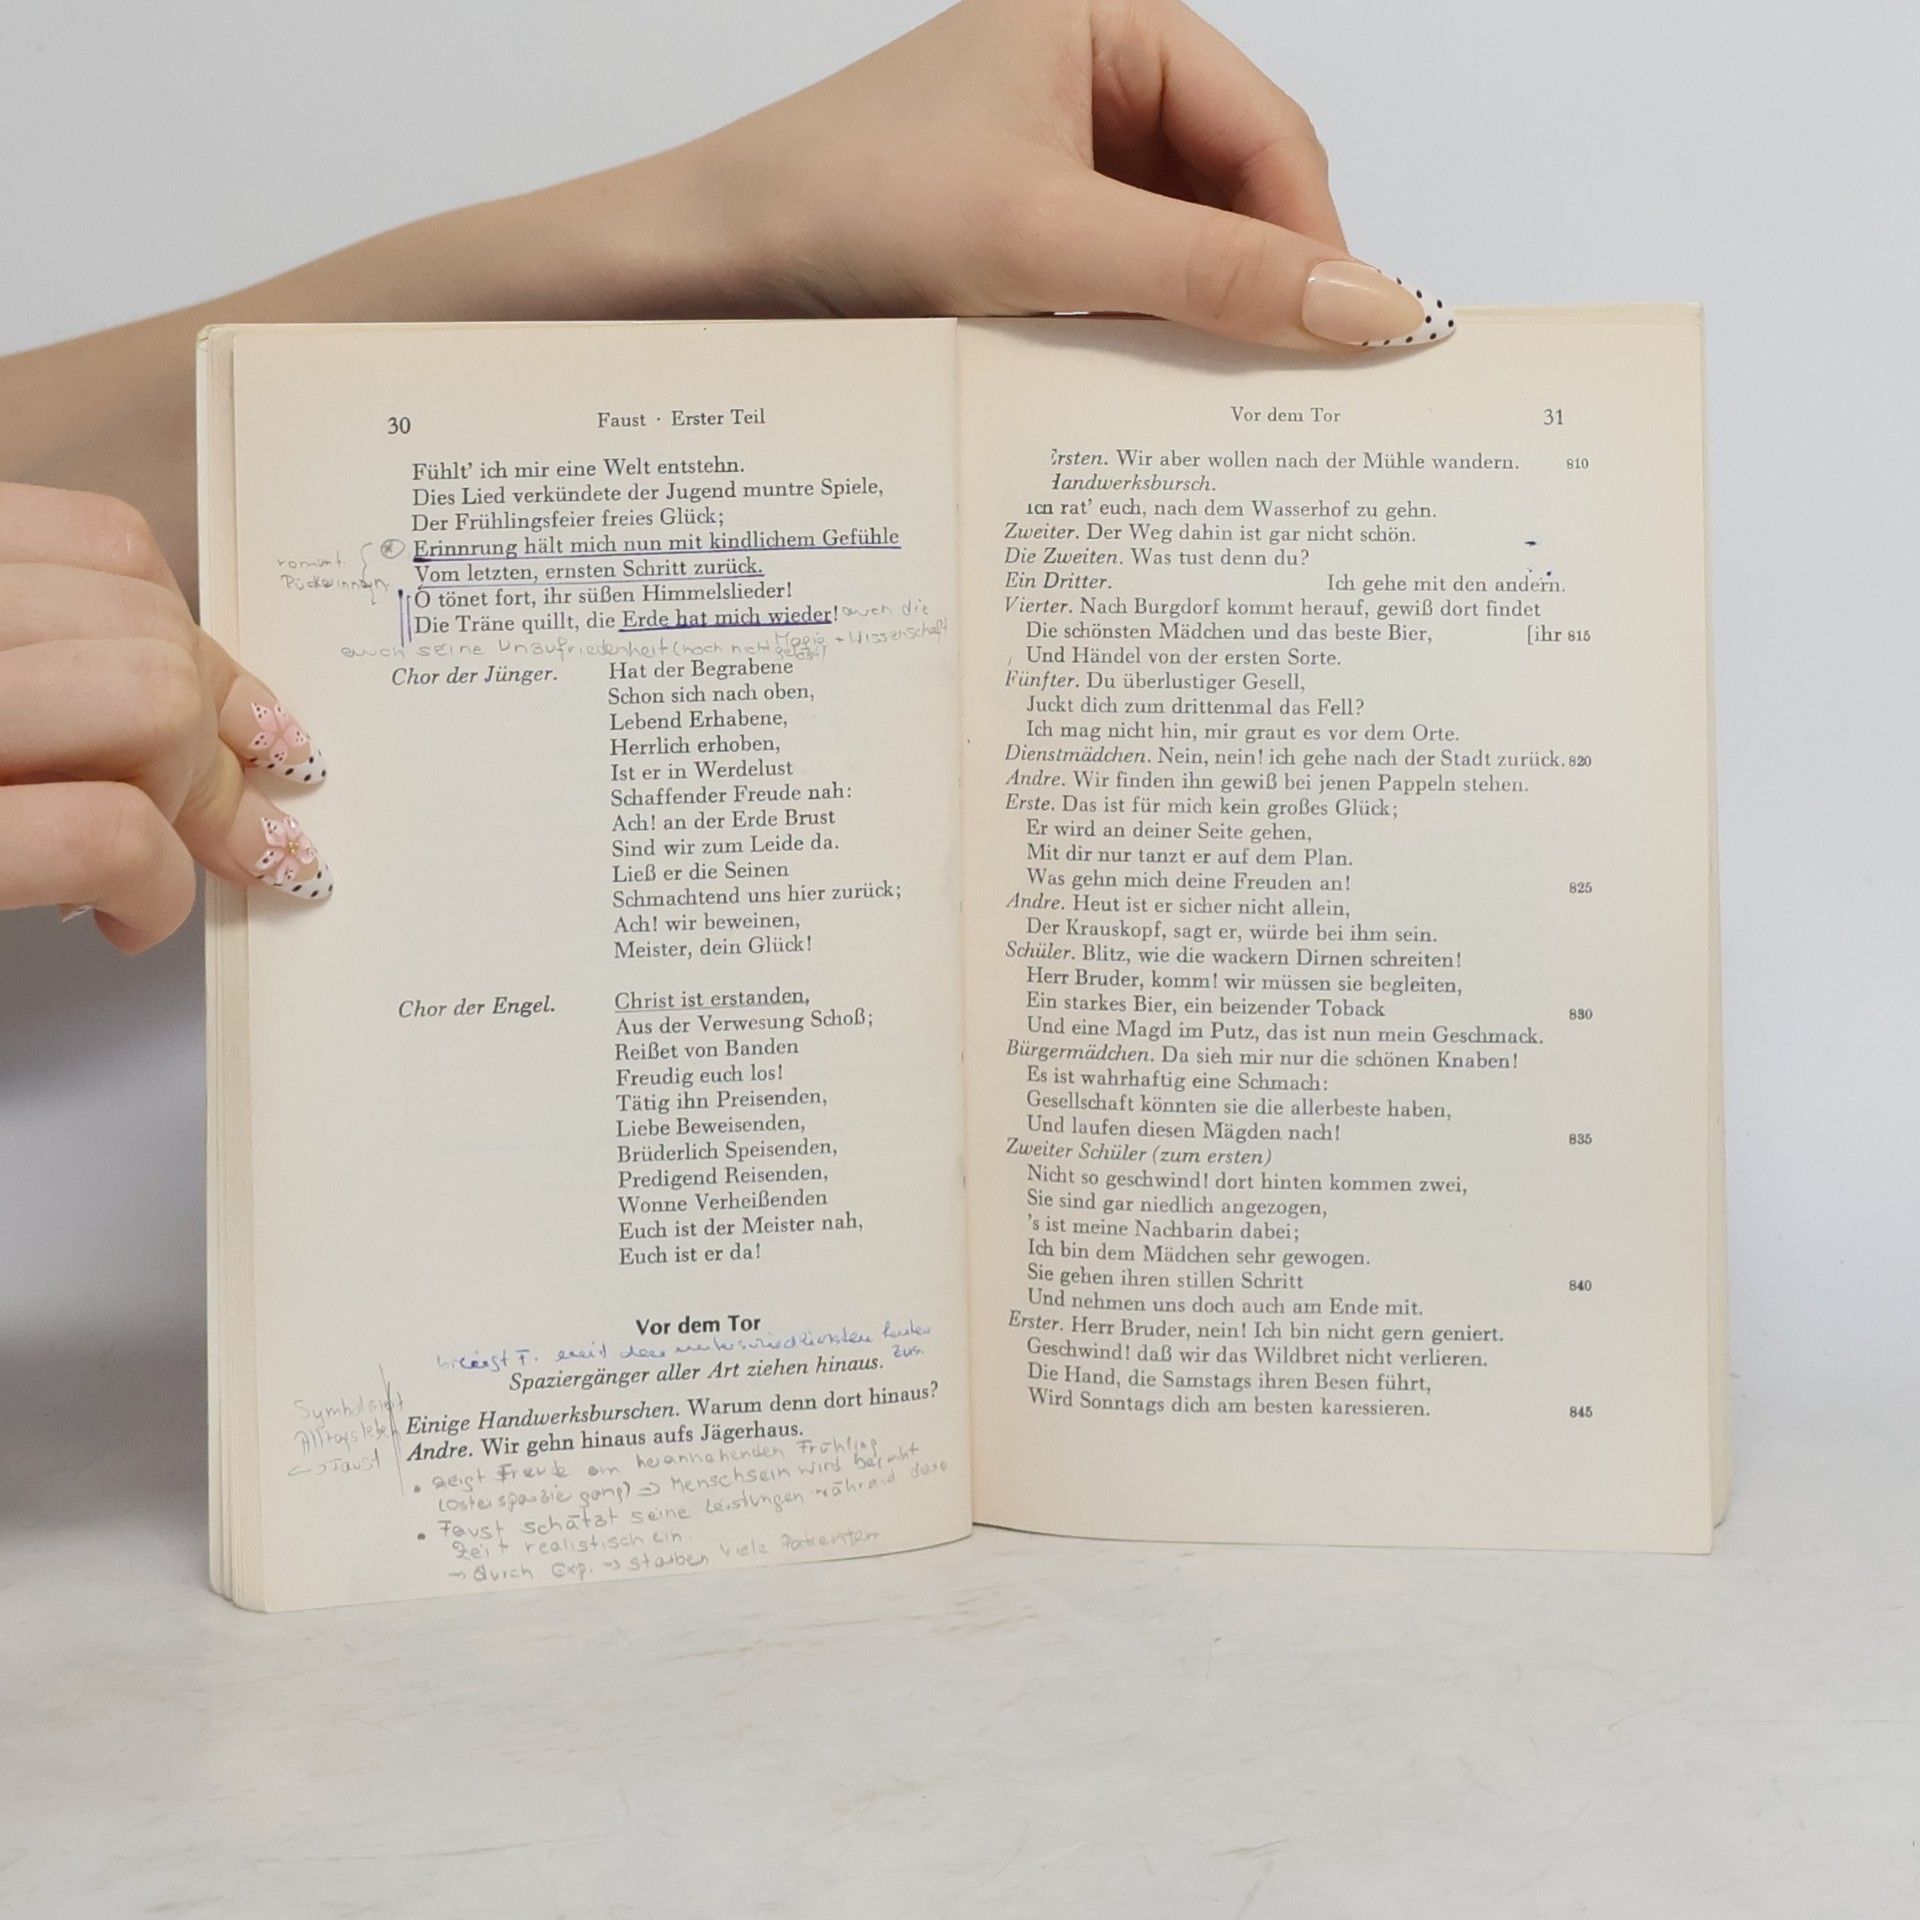 30
Faust · Erster Teil
Fühlt' ich mir eine Welt entstehn.
Dies Lied verkündete der Jugend muntre Spiele,
Der Frühlingsfeier freies Glück;
Erinnrung hält mich nun mit kindlichem Gefühle
Vom letzten, ernsten Schritt zurück.
romant.
O tönet fort, ihr süßen Himmelslieder!
Die Träne quillt, die Erde hat mich wieder!
auch die
Magie + Wissenschaft
auch seine Unzufriedenheit (noch nicht gelöst)
Chor der Jünger. Hat der Begrabene
Schon sich nach oben,
Lebend Erhabene,
Herrlich erhoben,
Ist er in Werdelust
Schaffender Freude nah:
Ach! an der Erde Brust
Sind wir zum Leide da.
Ließ er die Seinen
Schmachtend uns hier zurück;
Ach! wir beweinen,
Meister, dein Glück!
Chor der Engel. Christ ist erstanden,
Aus der Verwesung Schoß;
Reißet von Banden
Freudig euch los!
Tätig ihn Preisenden,
Liebe Beweisenden,
Brüderlich Speisenden,
Predigend Reisenden,
Wonne Verheißenden
Euch ist der Meister nah,
Euch ist er da!
Vor dem Tor
F.
zus.
Spaziergänger aller Art ziehen hinaus.
Symbolisiert
Alltagsleben
<-> Faust
Einige Handwerksburschen. Warum denn dort hinaus?
Andre. Wir gehn hinaus aufs Jägerhaus.
• zeigt Freude am herannahenden Frühling
(Osterspaziergang) => Menschsein wird bejaht
• Faust schätzt seine Leistungen während diese
Zeit realistisch ein.
→ durch Exp. → starben viele Patienten
Vor dem Tor
31
Ersten. Wir aber wollen nach der Mühle wandern. 810
Handwerksbursch.
Ich rat' euch, nach dem Wasserhof zu gehn.
Zweiter. Der Weg dahin ist gar nicht schön.
Die Zweiten. Was tust denn du?
Ein Dritter. Ich gehe mit den andern.
Vierter. Nach Burgdorf kommt herauf, gewiß dort findet
Die schönsten Mädchen und das beste Bier, [ihr 815
Und Händel von der ersten Sorte.
Fünfter. Du überlustiger Gesell,
Juckt dich zum drittenmal das Fell?
Ich mag nicht hin, mir graut es vor dem Orte.
Dienstmädchen. Nein, nein! ich gehe nach der Stadt zurück. 820
Andre. Wir finden ihn gewiß bei jenen Pappeln stehen.
Erste. Das ist für mich kein großes Glück;
Er wird an deiner Seite gehen,
Mit dir nur tanzt er auf dem Plan.
Was gehn mich deine Freuden an! 825
Andre. Heut ist er sicher nicht allein,
Der Krauskopf, sagt er, würde bei ihm sein.
Schüler. Blitz, wie die wackern Dirnen schreiten!
Herr Bruder, komm! wir müssen sie begleiten,
Ein starkes Bier, ein beizender Toback 830
Und eine Magd im Putz, das ist nun mein Geschmack.
Bürgermädchen. Da sieh mir nur die schönen Knaben!
Es ist wahrhaftig eine Schmach:
Gesellschaft könnten sie die allerbeste haben,
Und laufen diesen Mägden nach! 835
Zweiter Schüler (zum ersten)
Nicht so geschwind! dort hinten kommen zwei,
Sie sind gar niedlich angezogen,
's ist meine Nachbarin dabei;
Ich bin dem Mädchen sehr gewogen.
Sie gehen ihren stillen Schritt 840
Und nehmen uns doch auch am Ende mit.
Erster. Herr Bruder, nein! Ich bin nicht gern geniert.
Geschwind! daß wir das Wildbret nicht verlieren.
Die Hand, die Samstags ihren Besen führt,
Wird Sonntags dich am besten karessieren. 845